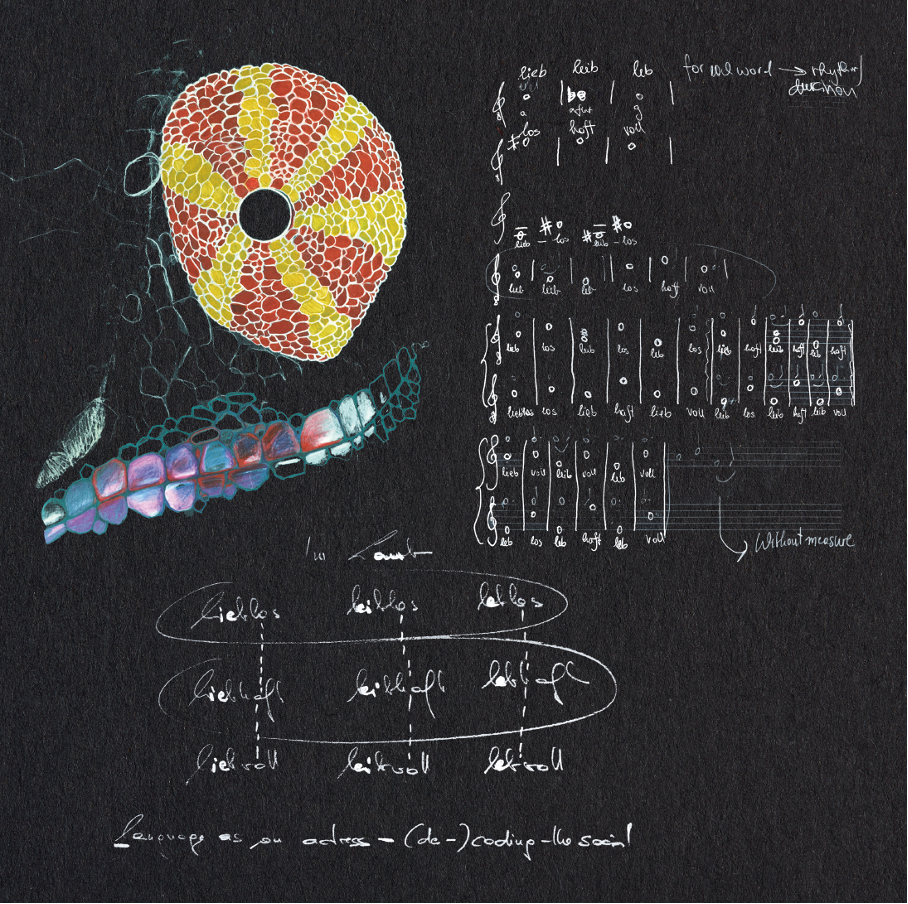 lieb leib leb
for real word → rhythm/
duration
a g
los haft voll
lieb – los leib – los
lieb leib leb los haft voll
lieb los leib los leb los leib haft leib haft leb haft
lieblos los lieb haft lieb voll leib los leib haft leib voll
lieb voll leib voll leb voll
leb los leb haft leb voll
Without measure
Im Laub
lieblos leiblos leblos
liebhaft leibhaft lebhaft
liebvoll leibvoll lebvoll
Language as an adress – (de-)coding – the social